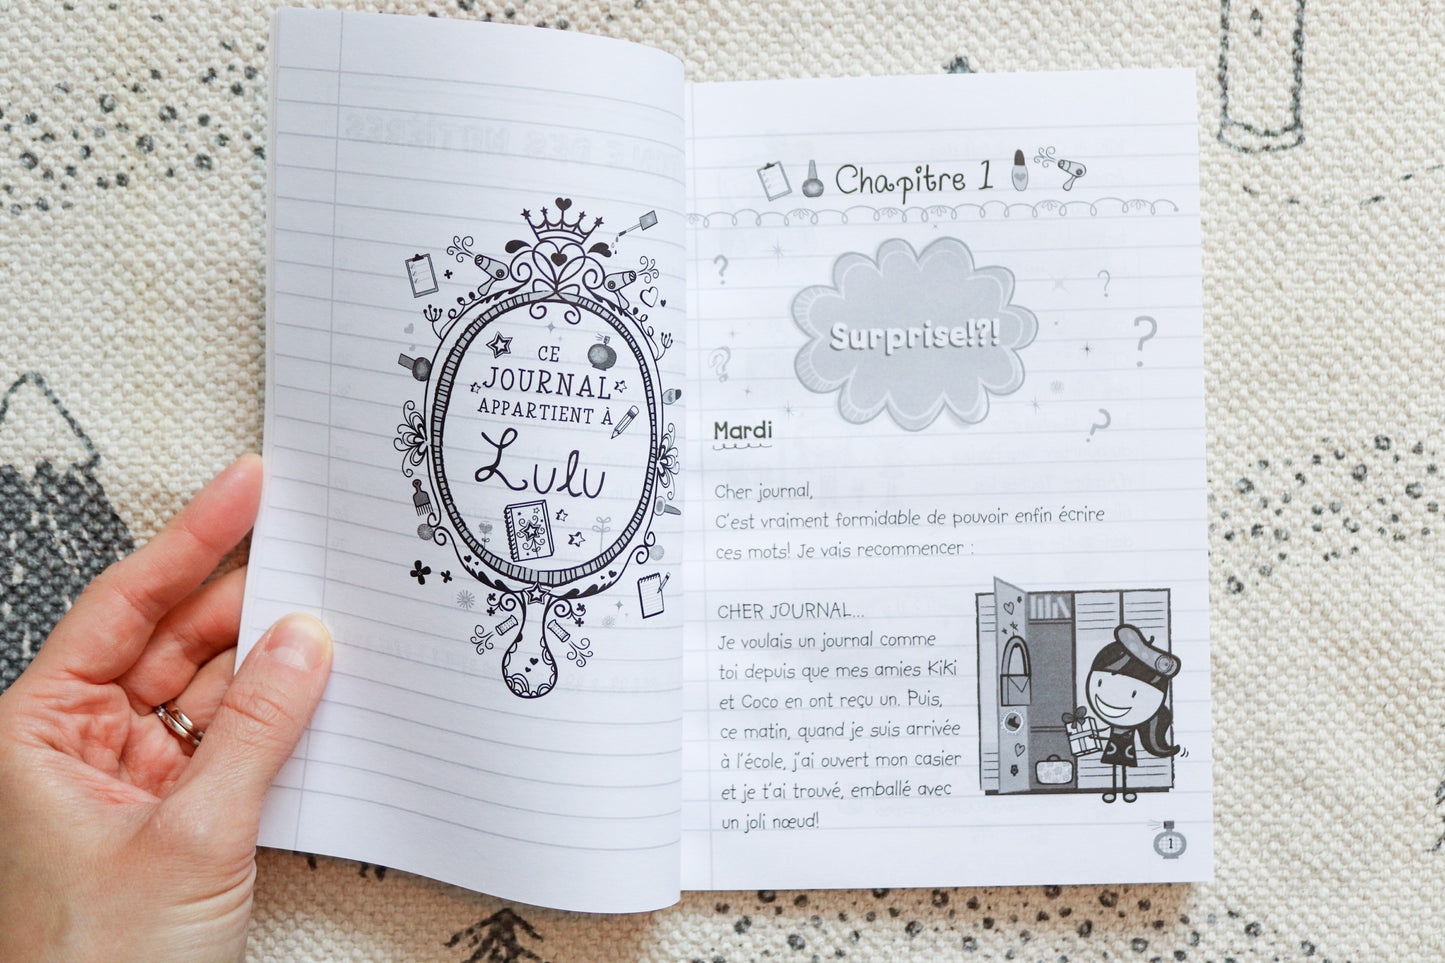 CE
JOURNAL
APPARTIENT À
Lulu
Chapitre 1
Surprise!?!
Mardi
Cher journal,
C'est vraiment formidable de pouvoir enfin écrire
ces mots! Je vais recommencer :
CHER JOURNAL...
Je voulais un journal comme
toi depuis que mes amies Kiki
et Coco en ont reçu un. Puis,
ce matin, quand je suis arrivée
à l'école, j'ai ouvert mon casier
et je t'ai trouvé, emballé avec
un joli nœud!
1